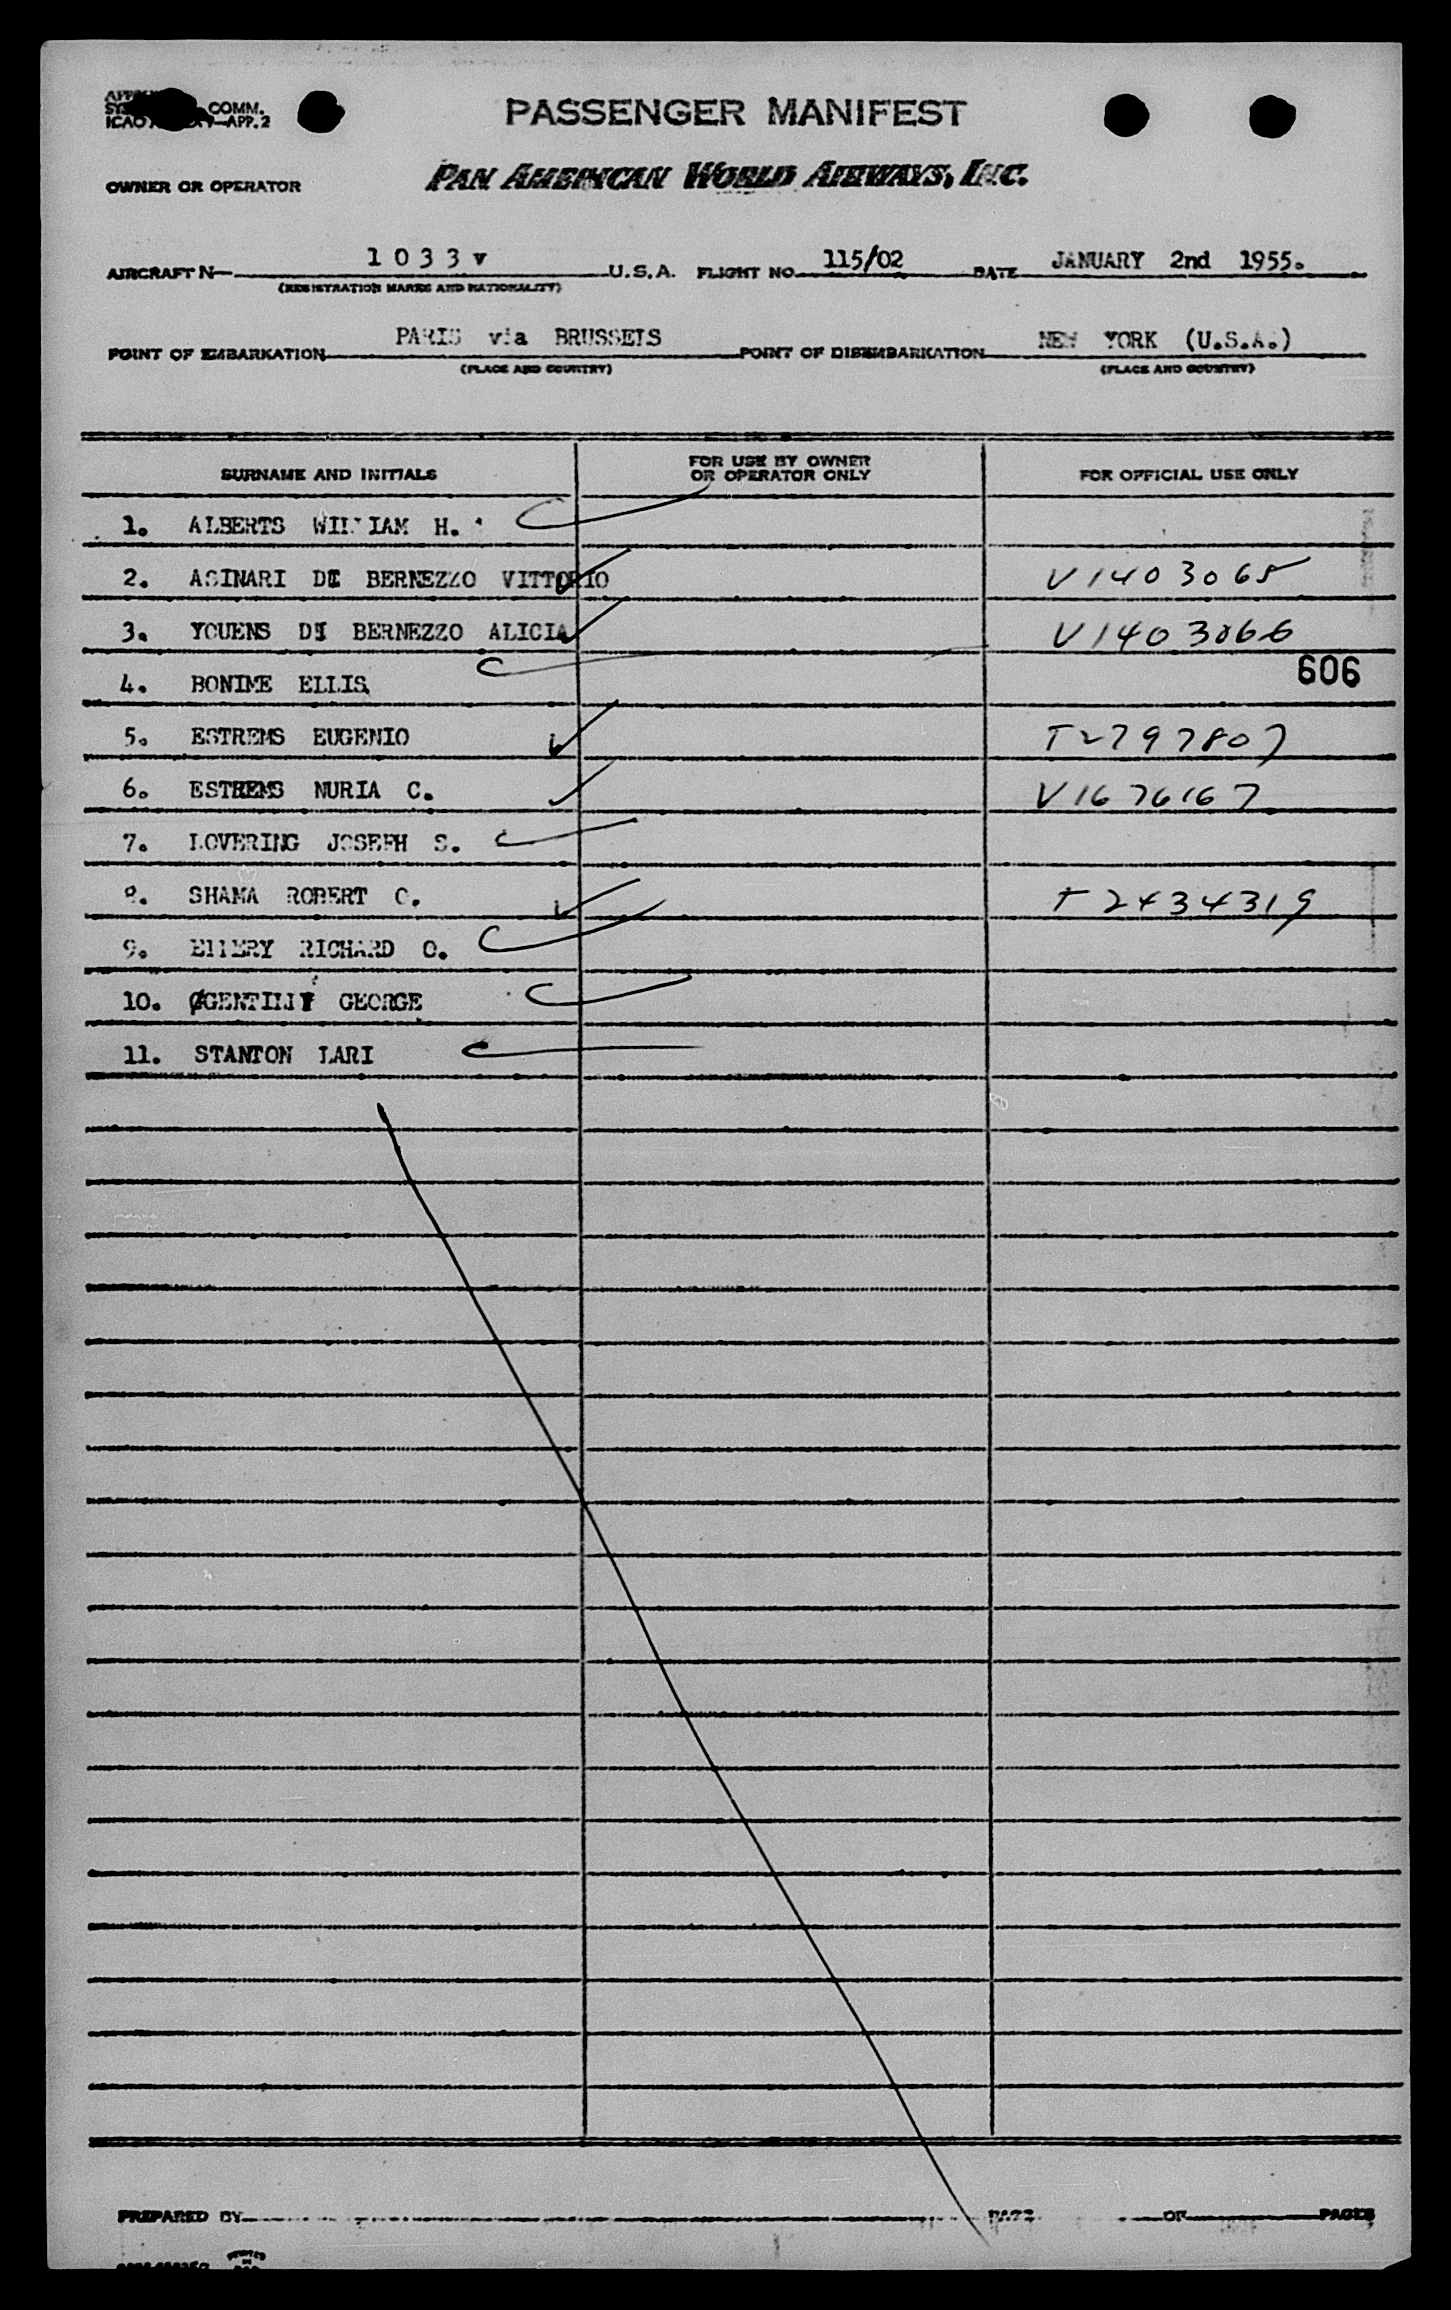 COMM.
APP. 2
PASSENGER MANIFEST
OWNER OR OPERATOR PAN AMERICAN WORLD AIRWAYS, INC.
AIRCRAFT N— 1 0 3 3 v U.S.A. FLIGHT NO. 115/02 DATE JANUARY 2nd 1955.
(REGISTRATION MARKS AND NATIONALITY)
POINT OF EMBARKATION PARIS via BRUSSELS POINT OF DISEMBARKATION NEW YORK (U.S.A.)
(PLACE AND COUNTRY) (PLACE AND COUNTRY)
SURNAME AND INITIALS FOR USE BY OWNER OR OPERATOR ONLY FOR OFFICIAL USE ONLY
1. ALBERTS WILLIAM H.
2. ASINARI DI BERNEZZO VITTORIO V1403065
3. YOUENS DI BERNEZZO ALICIA V1403066
4. BONIME ELLIS 606
5. ESTREMS EUGENIO T2797807
6. ESTREMS NURIA C. V1676167
7. LOVERING JOSEPH S.
8. SHAMA ROBERT C. T2434319
9. ELLERY RICHARD O.
10. GENTILLY GEORGE
11. STANTON LARI
PREPARED BY PAGE OF PAGES